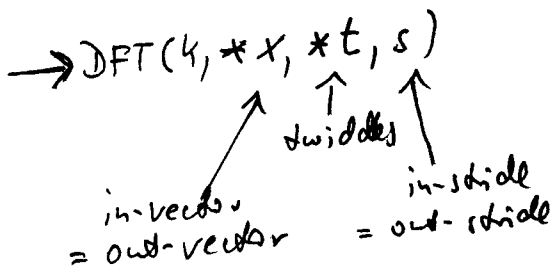 → DFT(4, *x, *t, s)
twiddles
in-vector
= out-vector
in-stride
= out-stride